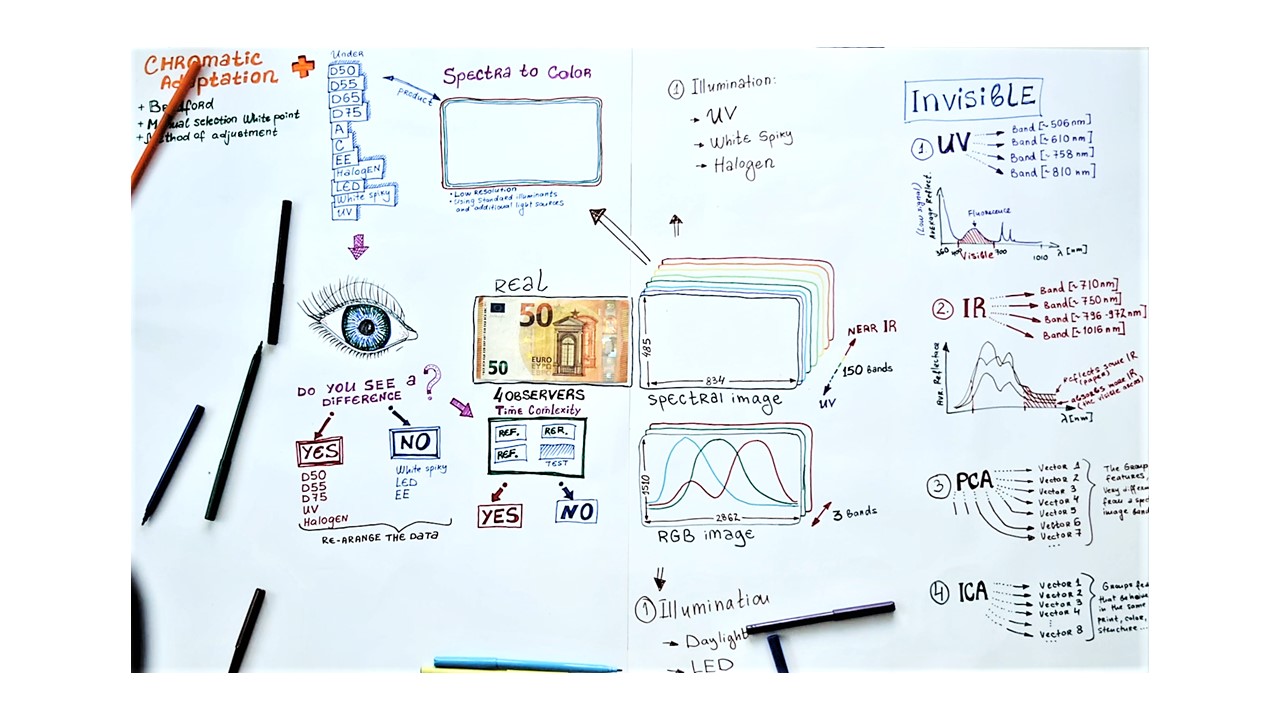 CHROMATIC
Adaptation
+ Bradford
+ Manual selection White point
+ Method of adjustment
Under
D50
D55
D65
D75
A
C
EE
HALOGEN
LED
White spiky
UV
product
SPECTRA TO COLOR
• Low Resolution
• Using Standard illuminants
and "additional" light sources
DO YOU SEE a ?
DIFFERENCE
YES
D50
D55
D75
UV
HALOGEN
NO
White spiky
LED
EE
RE-ARANGE THE DATA
REAL
50
EURO
50
4 OBSERVERS
Time Comlexity
REF.
RER.
REF.
TEST
YES
NO
① Illumination:
→ UV
→ White Spiky
→ Halogen
485
834
SPECTRAL image
NEAR IR
150 Bands
UV
1510
2862
RGB image
3 Bands
① Illumination
→ Daylight
→ LED
INVISIBLE
1. UV
Band [~506 nm]
Band [~610 nm]
Band [~758 nm]
Band [~810 nm]
(Low signal)
AVERAGE Reflect.
Fluorescence
360
400
Visible
700
1010
λ [nm]
2. IR
Band [~710nm]
Band [~750 nm]
Band [~796-972 nm]
Band [~1016 nm]
AVR Reflectace
Reflects some IR
(paper)
absorbs more IR
λ[nm]
3 PCA
Vector 1
Vector 2
Vector 3
Vector 4
Vector 5
Vector 6
Vector 7
...
The Group
features,
Very differen
from a spec
image band
4 ICA
Vector 1
Vector 2
Vector 3
Vector 4
Vector 8
...
Groups fea
that Behave
in the same
print, color,